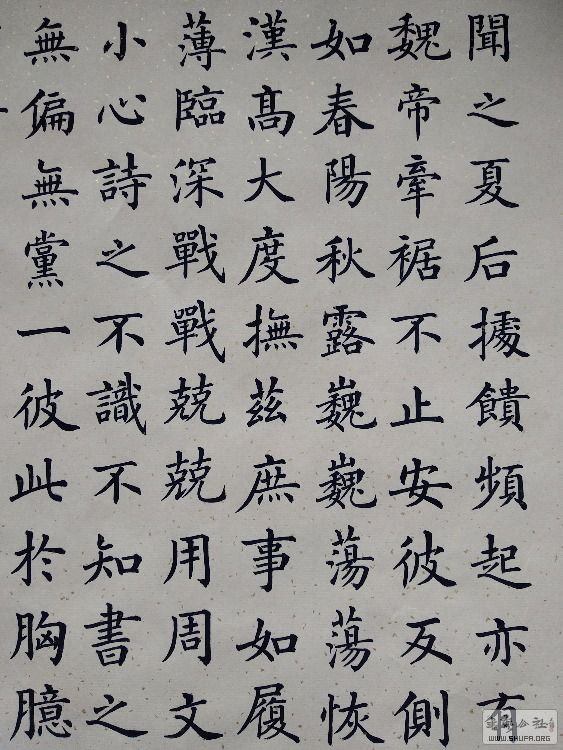 聞之夏后據饋頻起亦有
魏帝牽裾不止安彼反側
如春陽秋露巍巍蕩蕩恢
漢髙大度撫茲庶事如履
薄臨深戰戰兢兢用周文
小心詩之不識不知書之
無偏無黨一彼此於胸臆
WWW.SHUFA.ORG